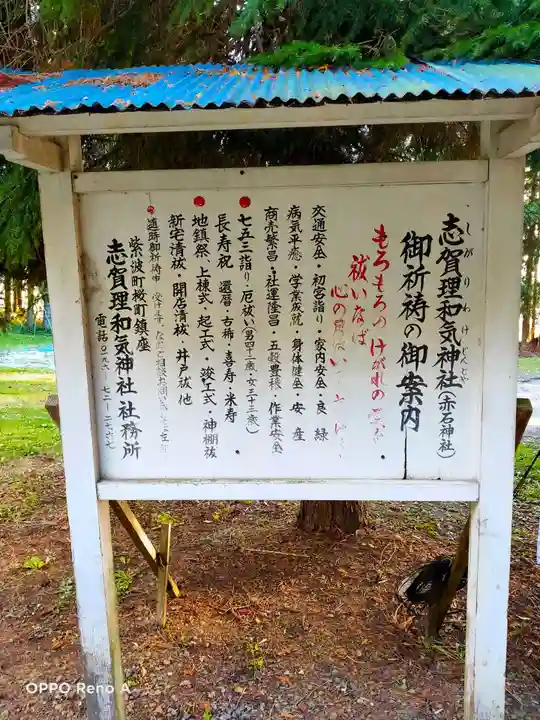 志賀理和気神社(赤石神社)
しがりわけじんじゃ
御祈祷の御案内
もろもろのけがれの
祓いなば
心の
交通安全・初宮詣り・家内安全・良縁
病気平癒・学業成就・身体健全・安産
商売繁昌・社運隆昌・五穀豊穣・作業安全
七五三詣り・厄祓い(男四十二歳・女三十三歳)
長寿祝 還暦・古稀・喜寿・米寿
地鎮祭・上棟式・起工式・竣工式・神棚祓
新宅清祓・開店清祓・井戸祓 他
随時御祈祷申 受けます
紫波町桜町鎮座
志賀理和気神社社務所
電話
OPPO Reno A